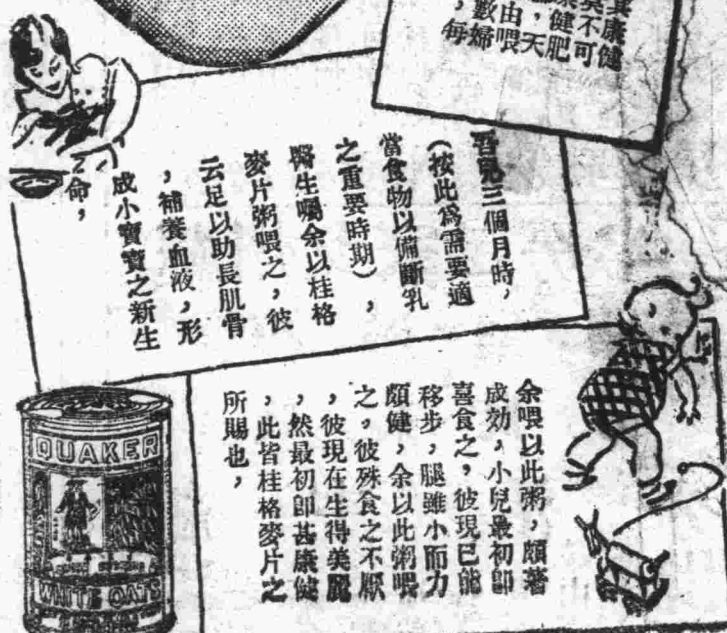 其康健
莫不可
康健肥
，天
由喂
數婦
，每
吾兒三個月時，
（按此爲需要適
當食物以備斷乳
之重要時期），
醫生囑余以桂格
麥片粥喂之，彼
云足以助長肌骨
，補養血液，形
成小寶寶之新生
命，
余喂以此粥，頗著
成効，小兒最初卽
喜食之，彼現已能
移步，腿雖小而力
頗健，余以此粥喂
之，彼殊食之不厭
，彼現在生得美麗
，然最初卽甚康健
，此皆桂格麥片之
所賜也，
QUAKER
WHITE OATS